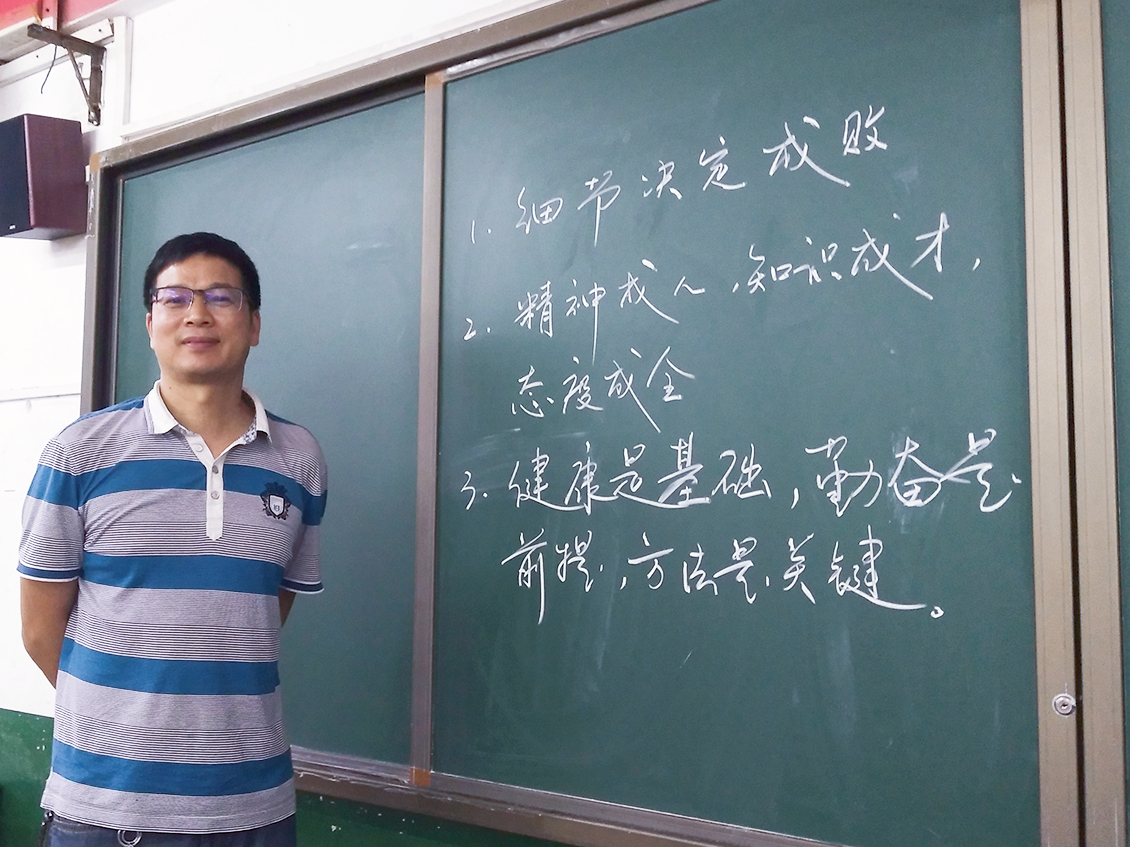 1. 细节决定成败
2. 精神成人，知识成才，
态度成全
3. 健康是基础，勤奋是
前提，方法是关键。